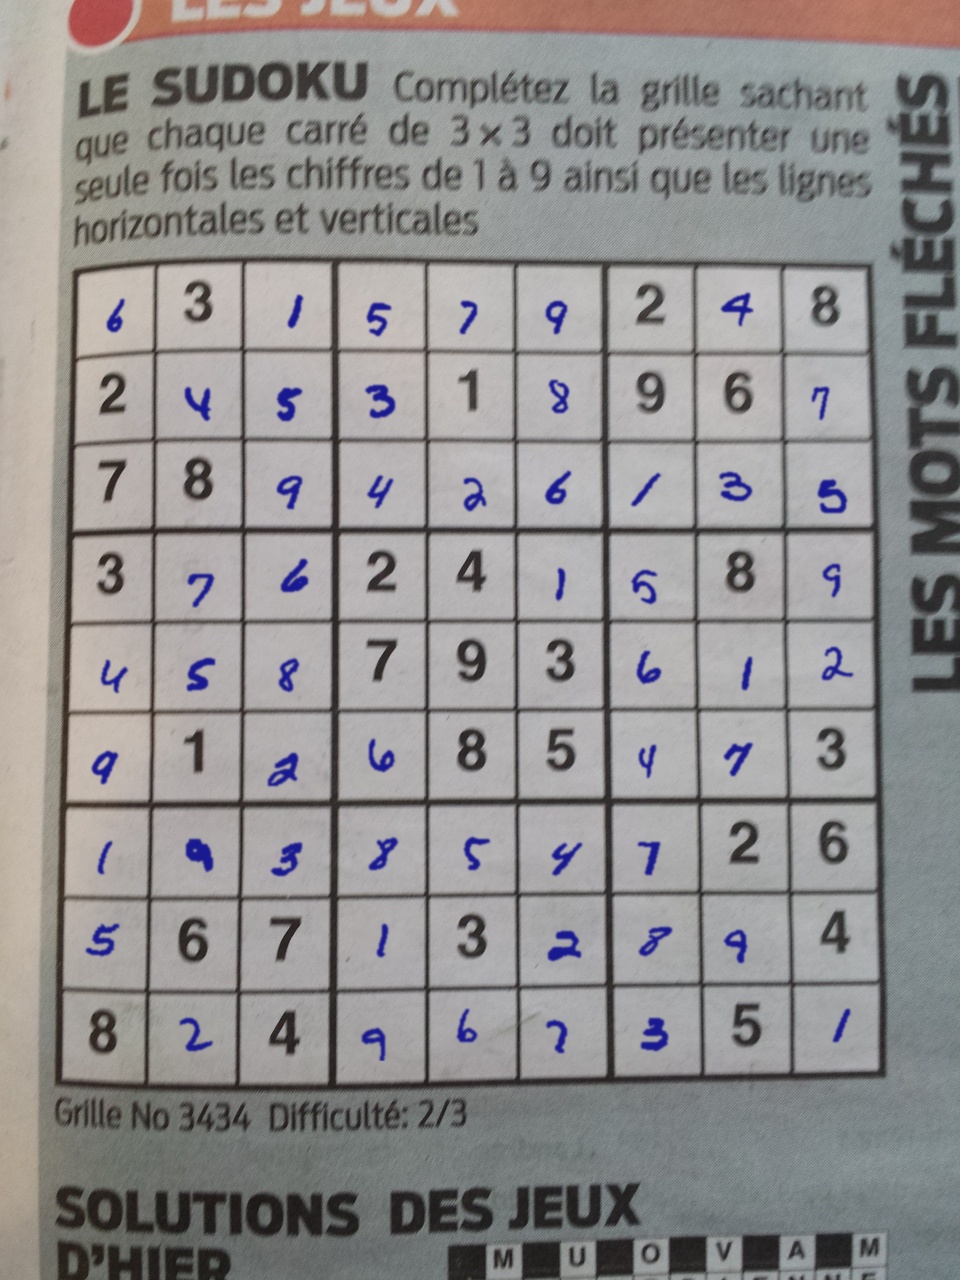 LES JEUX
LE SUDOKU Complétez la grille sachant
que chaque carré de 3 x 3 doit présenter une
seule fois les chiffres de 1 à 9 ainsi que les lignes
horizontales et verticales
6 3 1 5 7 9 2 4 8
2 4 5 3 1 8 9 6 7
7 8 9 4 2 6 1 3 5
3 7 6 2 4 1 5 8 9
4 5 8 7 9 3 6 1 2
9 1 2 6 8 5 4 7 3
1 9 3 8 5 4 7 2 6
5 6 7 1 3 2 8 9 4
8 2 4 9 6 7 3 5 1
Grille No 3434 Difficulté: 2/3
SOLUTIONS DES JEUX
D'HIER
M U O V A M
LES MOTS FLÉCHÉS